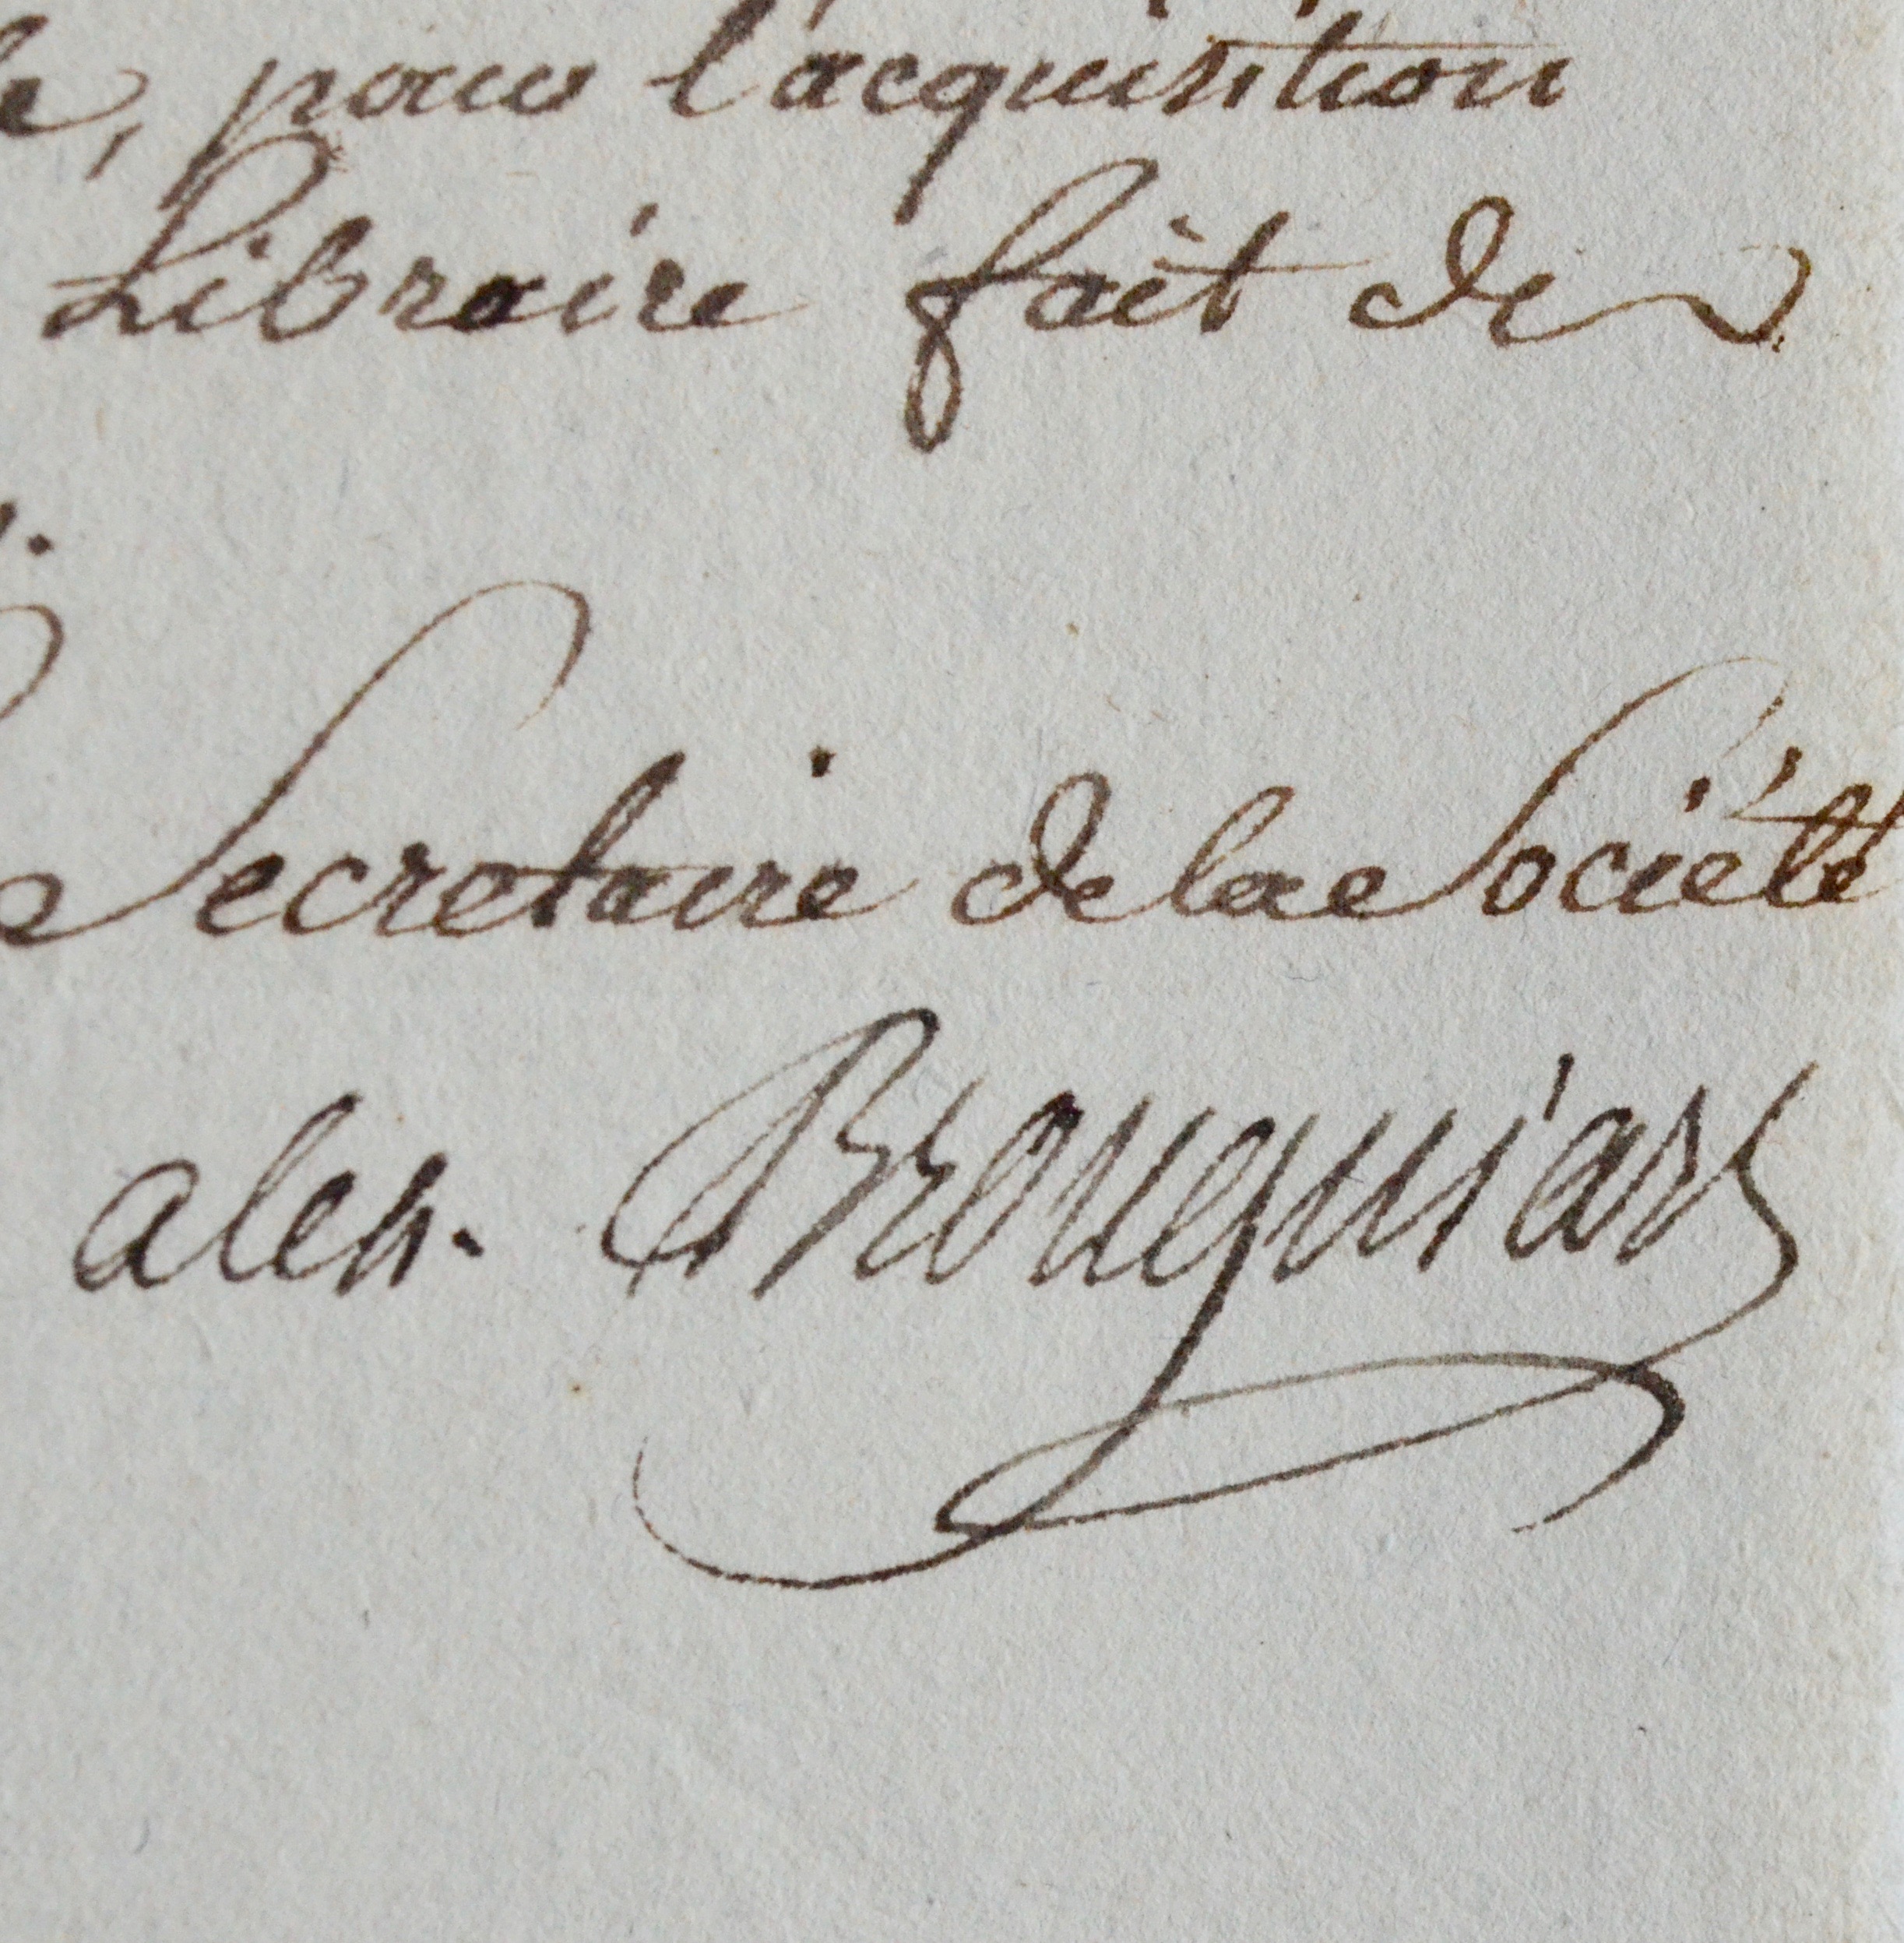 pour l'acquisition
Libraire fait de
Secretaire de la Société
alex. Brongniart